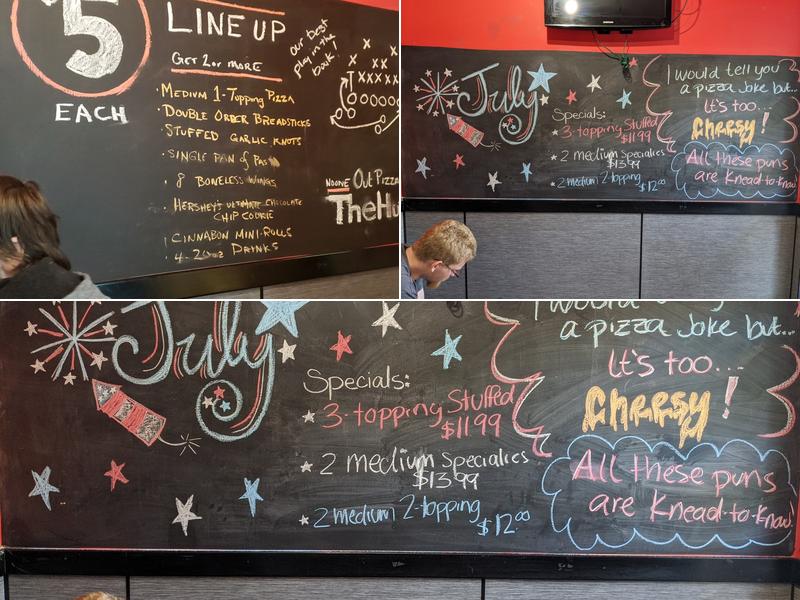 $5
EACH
LINE UP
GET 2 or MORE
• MEDIUM 1-Topping Pizza
• DOUBLE ORDER BREADSTICKS
• STUFFED GARLIC KNOTS
• SINGLE PAN of PASTA
• 8 BONELESS WINGS
• HERSHEY'S ULTIMATE CHOCOLATE
CHIP COOKIE
• CINNABON MINI-ROLLS
• 4-20oz DRINKS
our best
play in the
book!
NOONE Out Pizza
TheHu
July
Specials:
3-topping Stuffed
$11.99
2 medium Specialties
$13.99
2 medium 2-topping
$12.00
I would tell you
a pizza joke but...
It's too...
Cheesy!
All these puns
are Knead-to-Know
July
Specials:
3-topping Stuffed
$11.99
2 medium Specialties
$13.99
2 medium 2-topping
$12.00
I would
a pizza Joke but...
It's too...
Cheesy!
All these puns
are Knead-to-Know!